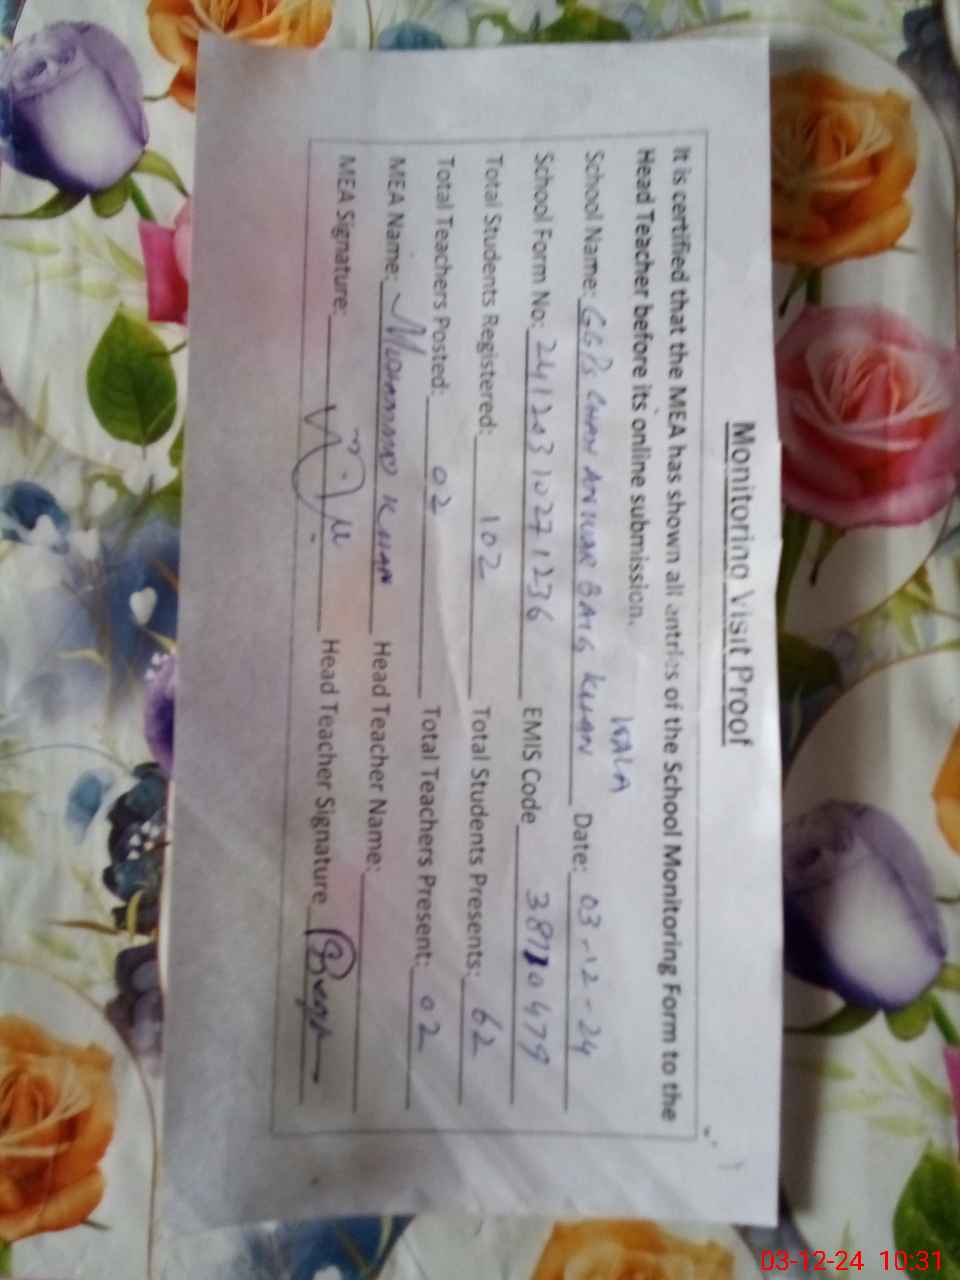 Monitoring Visit Proof
It is certified that the MEA has shown all entries of the School Monitoring Form to the
Head Teacher before its online submission.
WALA
School Name: GGPS CHAH ANWAR BAIG KHAN Date: 03-12-24
School Form No: 24120310271236 EMIS Code 38710479
Total Students Registered: 102 Total Students Presents: 62
Total Teachers Posted: 02 Total Teachers Present: 02
MEA Name: MUHAMMAD KHAN Head Teacher Name:
MEA Signature: Head Teacher Signature
03-12-24 10:31